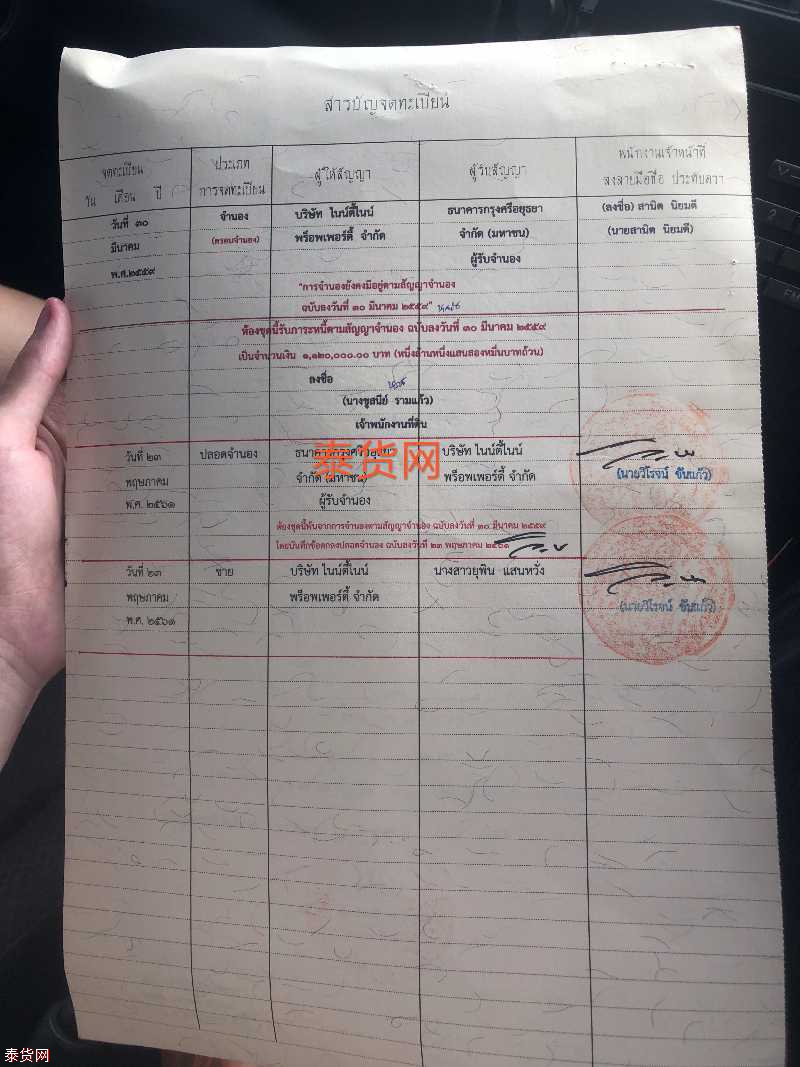 สารบัญจดทะเบียน
จดทะเบียน
วัน เดือน ปี
ประเภท
การจดทะเบียน
ผู้ให้สัญญา
ผู้รับสัญญา
พนักงานเจ้าหน้าที่
ลงลายมือชื่อ ประทับตรา
วันที่ ๓๐
มีนาคม
พ.ศ.๒๕๕๙
จำนอง
(ครอบจำนอง)
บริษัท ไนน์ตี้ไนน์
พร็อพเพอร์ตี้ จำกัด
ธนาคารกรุงศรีอยุธยา
จำกัด (มหาชน)
ผู้รับจำนอง
(ลงชื่อ) สานิต นิยมดี
(นายสานิต นิยมดี)
"การจำนองยังคงมีอยู่ตามสัญญาจำนอง
ฉบับลงวันที่ ๓๐ มีนาคม ๒๕๕๙"
ห้องชุดนี้รับภาระหนี้ตามสัญญาจำนอง ฉบับลงวันที่ ๓๐ มีนาคม ๒๕๕๙
เป็นจำนวนเงิน ๑,๑๒๐,๐๐๐.๐๐ บาท (หนึ่งล้านหนึ่งแสนสองหมื่นบาทถ้วน)
ลงชื่อ
(นางชูสนีย์ รามแก้ว)
เจ้าพนักงานที่ดิน
วันที่ ๒๓
พฤษภาคม
พ.ศ. ๒๕๖๑
ปลอดจำนอง
ธนาคารกรุงศรีอยุธยา
จำกัด (มหาชน)
ผู้รับจำนอง
บริษัท ไนน์ตี้ไนน์
พร็อพเพอร์ตี้ จำกัด
(นายวิโรจน์ ขันแก้ว)
ห้องชุดนี้พ้นจากการจำนองตามสัญญาจำนอง ฉบับลงวันที่ ๓๐ มีนาคม ๒๕๕๙
โดยบันทึกข้อตกลงปลอดจำนอง ฉบับลงวันที่ ๒๓ พฤษภาคม ๒๕๖๑
วันที่ ๒๓
พฤษภาคม
พ.ศ. ๒๕๖๑
ขาย
บริษัท ไนน์ตี้ไนน์
พร็อพเพอร์ตี้ จำกัด
นางสาวยุพิน แสนหวัง
(นายวิโรจน์ ขันแก้ว)
泰货网
泰货网